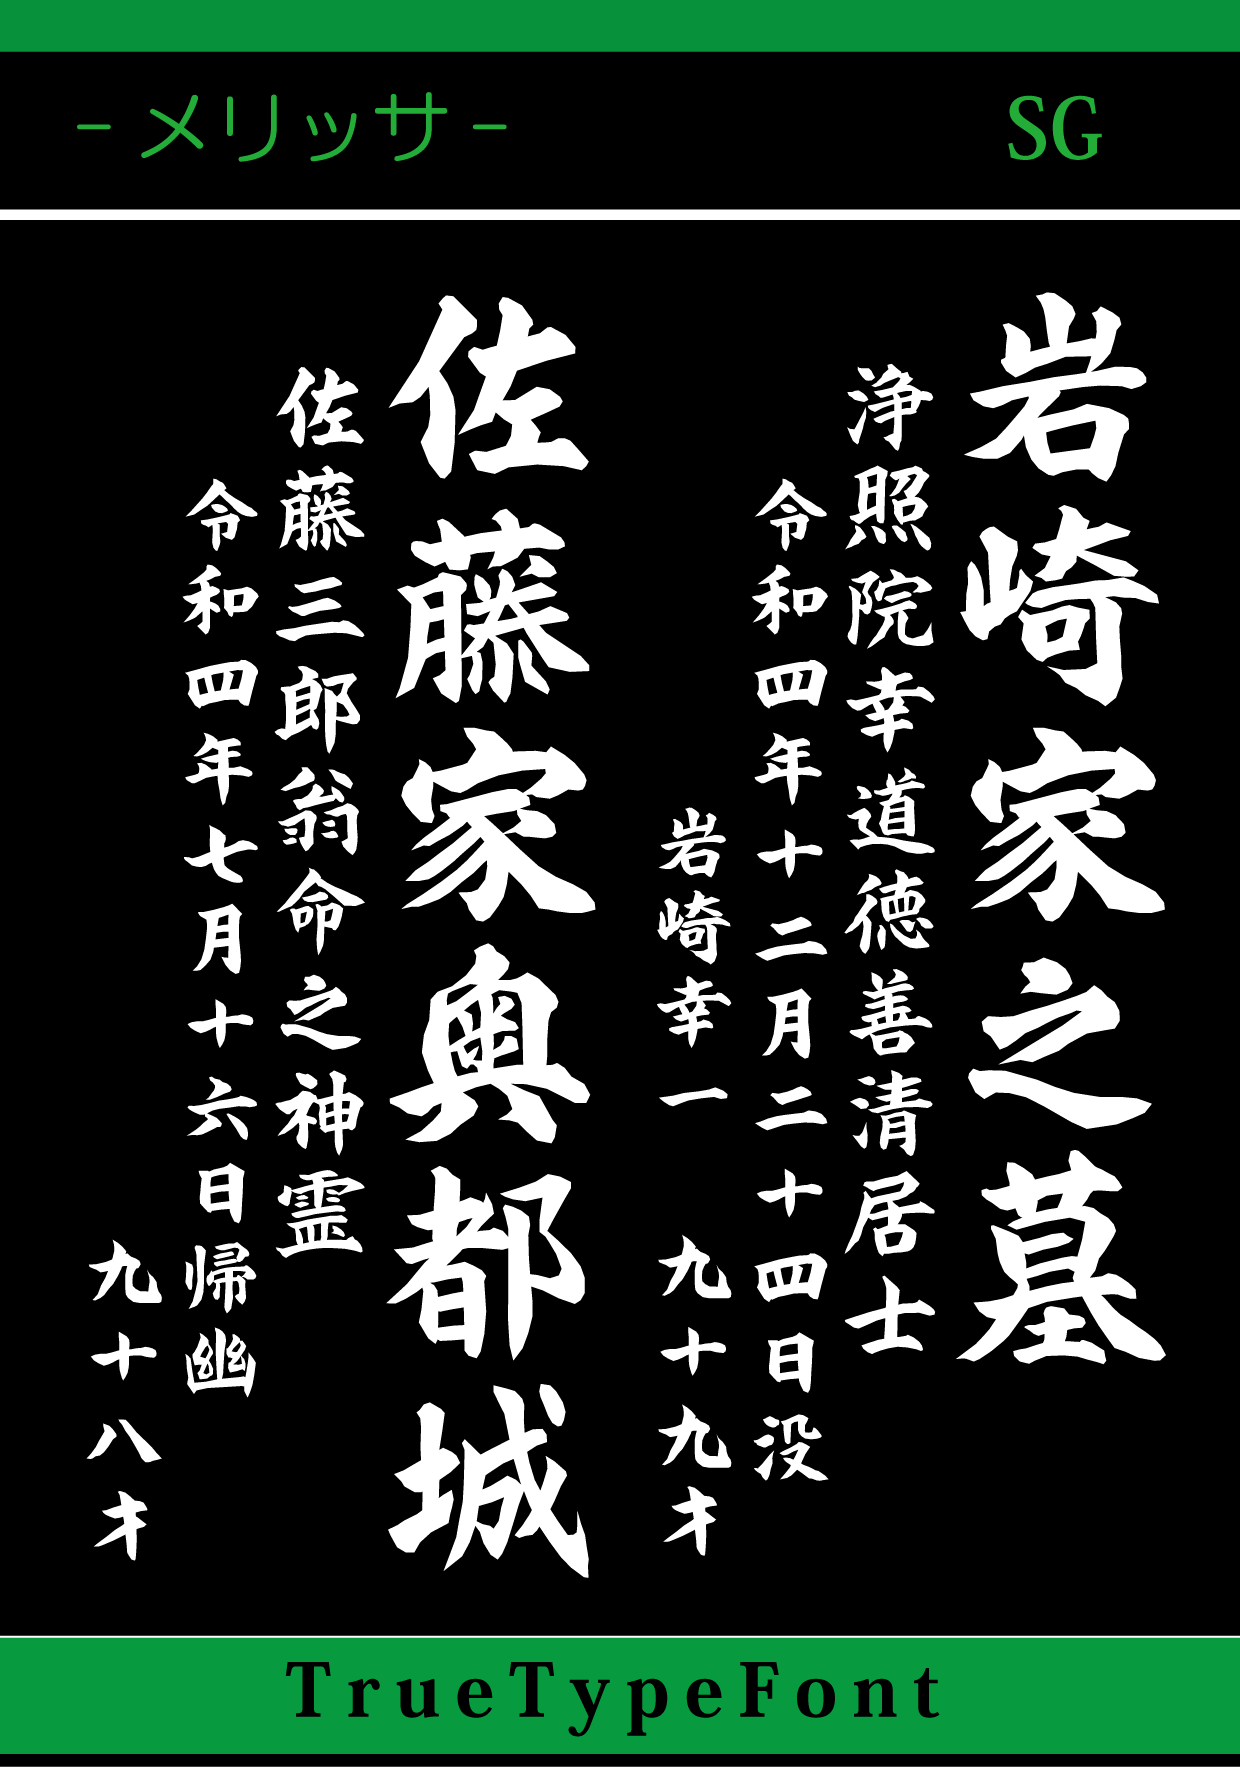 -メリッサ-
SG
岩崎家之墓
浄照院幸道德善清居士
令和四年十二月二十四日没
岩崎幸一 九十九才
佐藤家奥都城
佐藤三郎翁命之神霊
令和四年七月十六日帰幽
九十八才
TrueTypeFont